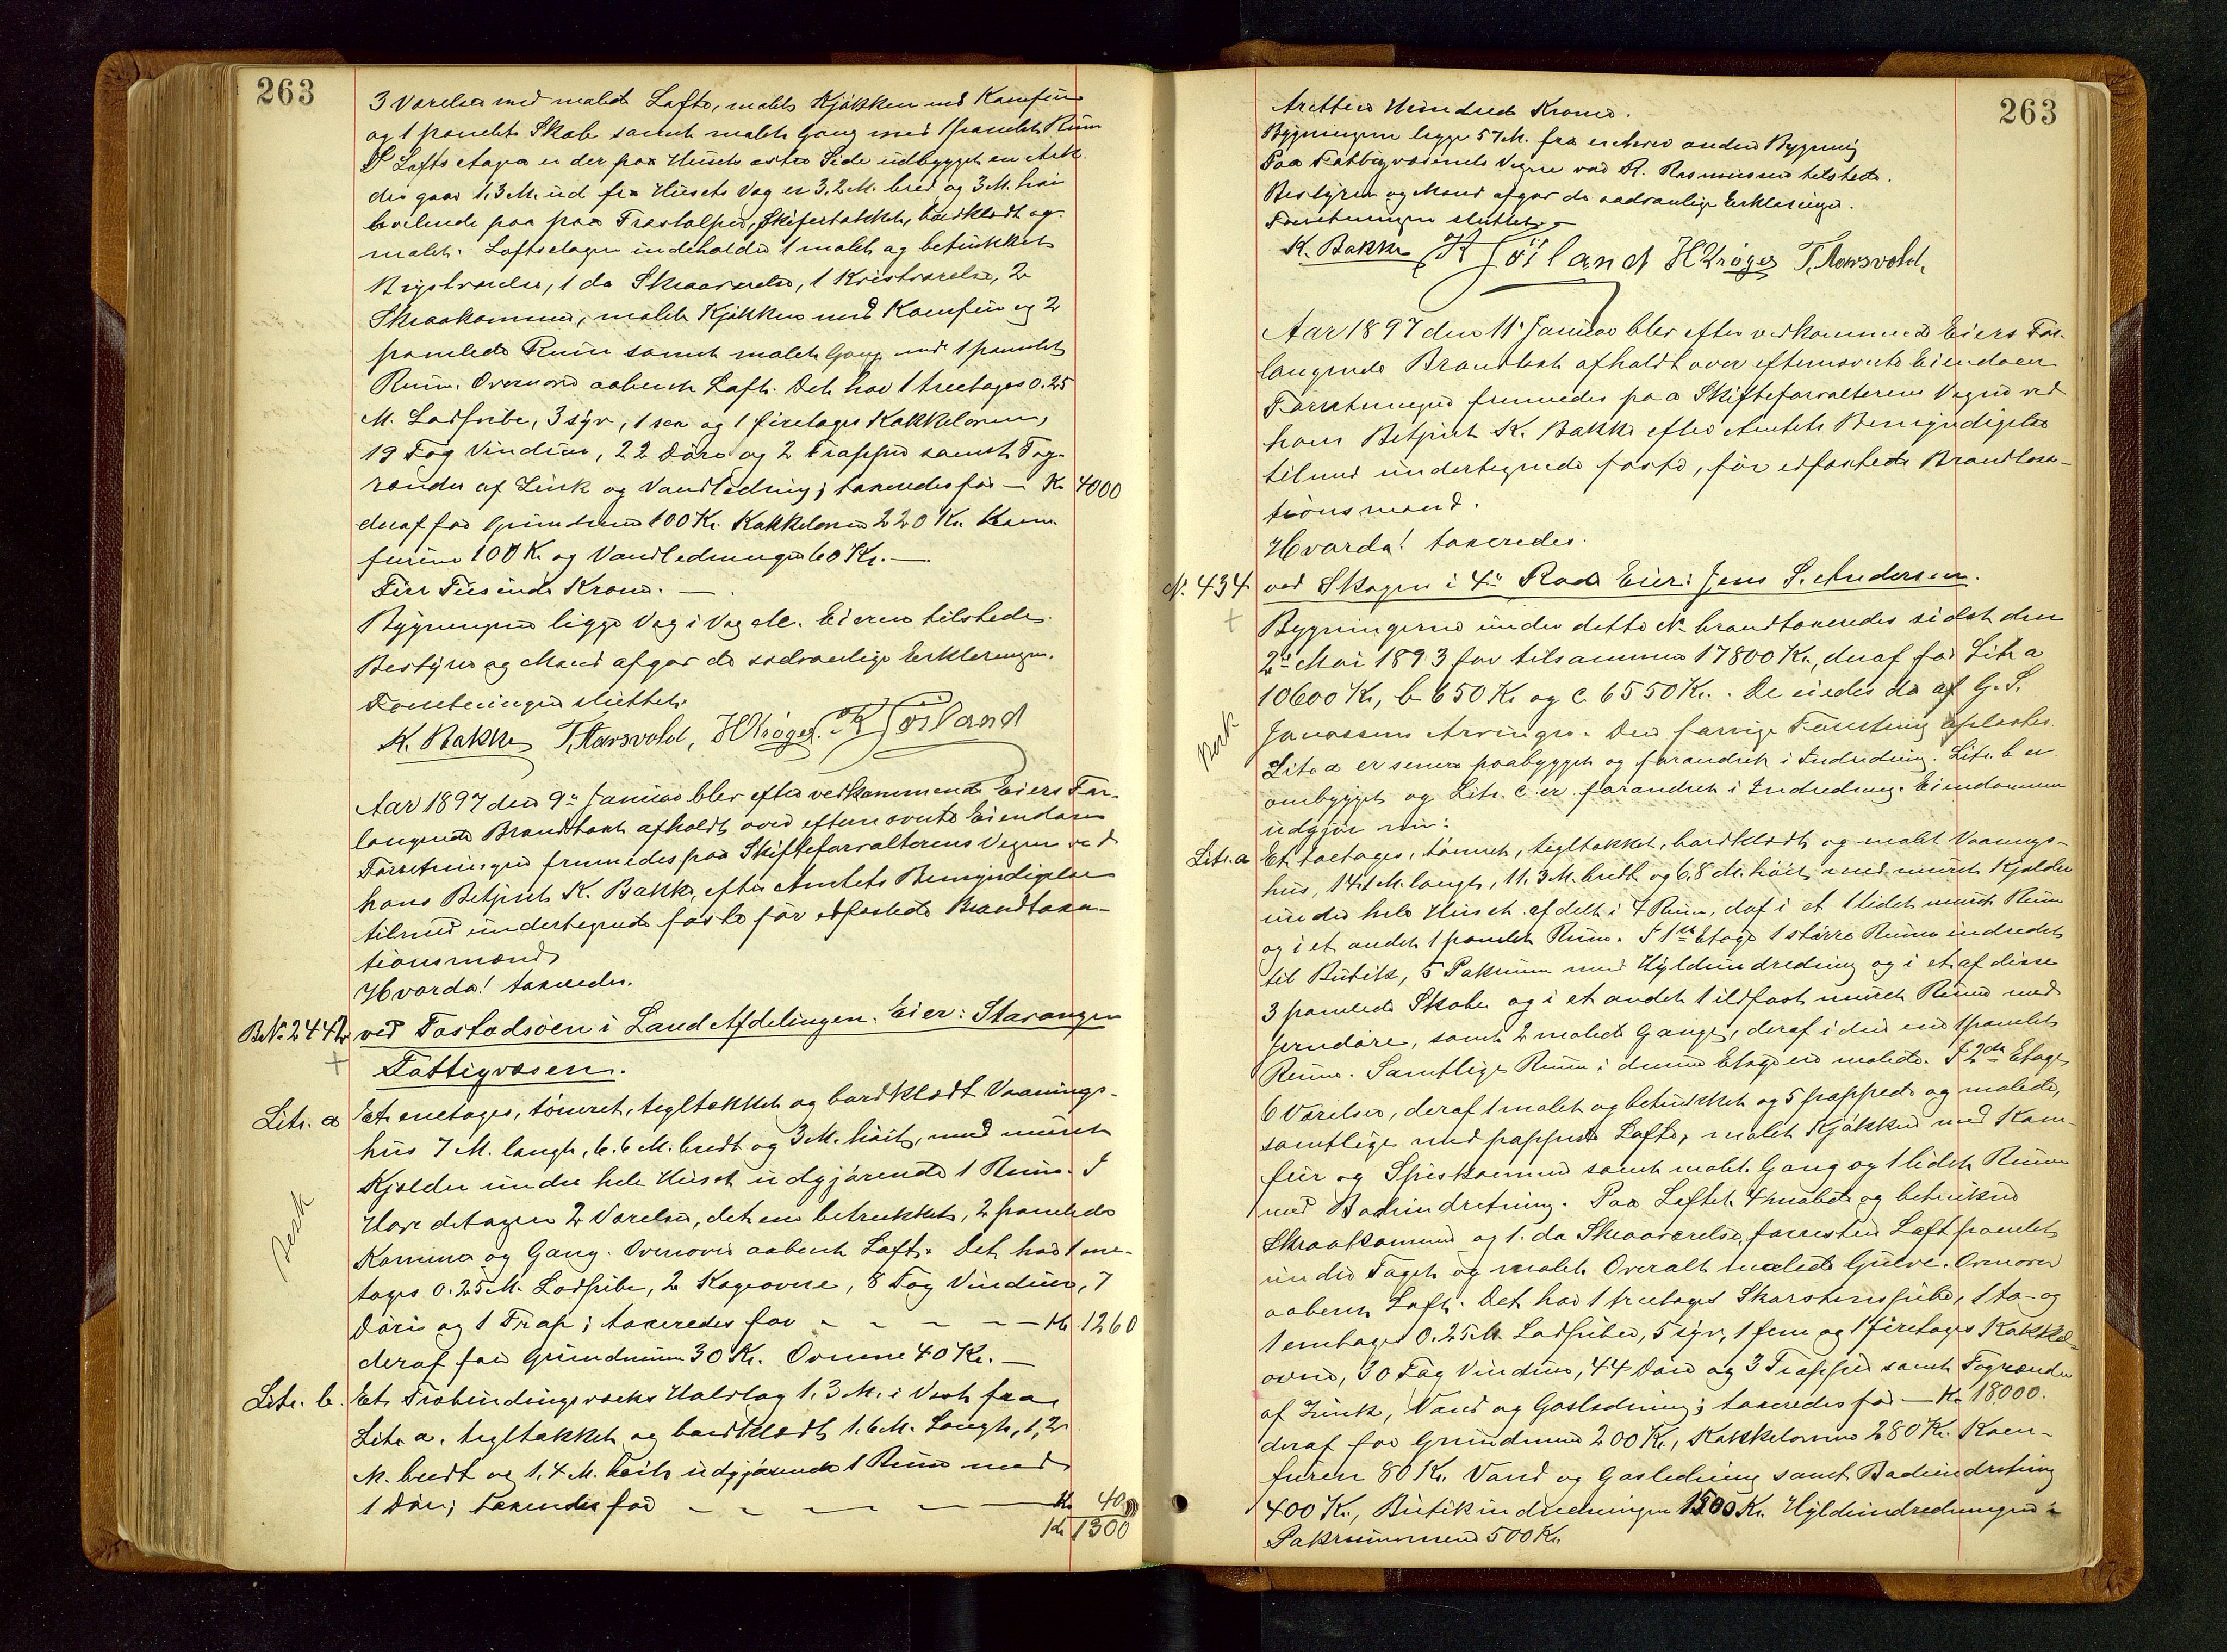 263
3 Værelser med malede Lofte, malet Kjøkken med Komfur
og 1 panelet Skab samt malet Gang med 1 panelet Rum
I Loftsetagen er der paa Husets østre Side udbygget en Ark
der gaar 1,3 M. ud fra Husets Væg er 3,2 M. bred og 3 M. høi
hvilende paa paa Træstolper, Skifertækket, bordklædt og
malet. Loftsetagen indeholder 1 malet og betrukket
Kvistværelse, 1 do Skraaværelse, 1 Kvistværelse, 2
Skraakammere, malet Kjøkken med Komfur og 2
panelede Rum samt malet Gang med 1 panelet
Rum. Ovenover aabent Loft. Det har 1 treetages 0.25
M. Lodpibe, 3 syv, 1 sex og 1 fireetages Kakkelovne,
19 Fag Vinduer, 22 Døre og 2 Trapper samt Tag-
render af Zink og Vandledning; taxeredes for — Kr 4000
deraf for Grundmur 100 Kr. Kakkelovne 220 Kr. Kom-
furene 100 Kr. og Vandledningen 60 Kr. —
Fire Tusinde Kroner. —
Bygningen ligge Væg i Væg Ml. Eieren tilstede.
Bestyrer og Mænd afgav de sædvanlige Erklæringer.
Forretningen sluttet.
K. Bakke T. Aarsvold, H Krøger. K Gjöiland
Aar 1897 den 9de Januar blev efter vedkommende Eiers For-
langende Brandtaxt afholdt over efternævnte Eiendom
Forretningen fremmedes paa Skifteforvalterens Vegne ved
hans Betjent K. Bakke, efter Amtets Bemyndigelse
tilmed undertegnede faste før edfæstede Brandtaxa-
tionsmænd
Hvorda! taxeredes.
B.N. 2442 ved Tastadsøen i Land Afdelingen. Eier: Stavanger
Fattigvæsen.
Litr. a Et enetages, tømret, tegltækket og bordklædt Vaanings-
hus 7 M. langt, 6.6 M. bredt og 3 M. høit, med muret
Kjælder under hele Huset udgjørende 1 Rum. I
Besk
Hovedetagen 2 Værelser, det ene betrukket, 2 panelede
Kammer og Gang. Ovenover aabent Loft. Det har 1 ene-
tages 0.25 M. Lodpibe, 2 Kogeovne, 8 Fag Vinduer, 7
Døre og 1 Trap; taxeredes for - - - - — Kr 1260
deraf for Grundmuren 30 Kr. Ovnene 40 Kr. —
Litr. b. Et Træbindingsværks Halvtag 1.3 M. i Vest fra
Litr a, tegltækket og bordklædt 1.6 M. Langt, 1,2
M. bredt og 1.4 M. høit udgjørende 1 Rum med
1 Dør; taxeredes for - - - - — Kr 40
Kr 1300
263
Aretten Hundrede Kroner.
Bygningerne ligge 57 M. fra enhver anden Bygning
Paa Fattigvæsenets Vegne var R. Rasmussen tilstede.
Bestyrer og Mænd afgav de sædvanlige Erklæringer.
Forretningen sluttet. —
K. Bakke K Gjöiland H Krøger T. Aarsvold,
Aar 1897 den 11te Januar blev efter vedkommende Eiers For-
langende Brandtaxt afholdt over efternævnte Eiendom
Forretningen fremmedes paa Skifteforvalterens Vegne ved
hans Betjent K. Bakke efter Amtets Bemyndigelse
tilmed undertegnede faste, før edfæstede Brandtaxa-
tionsmænd.
Hvorda! taxeredes.
N. 434 ved Skagen i 4de Rode Eier: Jens S. Andersen.
Bygningerne under dette No brandtaxeredes sidst den
2de Mai 1893 for tilsammen 17800 Kr., deraf for Litr a
10600 Kr, b 650 Kr og c 6550 Kr. De eiedes da af G. S.
Besk
Jonassens Arvinger. Den forrige Forretning oplæstes.
Litr a er senere paabygget og forandret i Indredning. Litr. b er
ombygget og Litr. c. er forandret i Indredning. Eiendommen
udgjør nu:
Litr. a Et toetages, tømret, tegltækket, bordklædt og malet Vaanings-
hus, 14,1 M. langt, 11.3 M. bredt og 6.8 M. høit, med muret Kjælder
under hele Huset afdelt i 4 Rum, deraf i et 1 lidet muret Rum
og i et andet 1 panelet Rum. I 1ste Etage 1 større Rum indredet
til Butik, 5 Pakrum med Hyldeindredning og i et af disse
3 panelede Skabe og i et andet 1 ildfast muret Rum med
Jerndøre, samt 2 malede Gange, deraf i den ene 1 panelet
Rum. Samtlige Rum i denne Etage ere malede. I 2den Etage
6 Værelser, deraf 1 malet og betrukket og 5 pappede og malede,
samtlige med pappede Lofte, malet Kjøkken med Kom-
fur og Spiskammer samt malet Gang og 1 lidet Rum
med Badeindretning. Paa Loftet 4 malede og betrukne
Skraakammere og 1. do Skraaværelse, forresten Loft panelet
under Taget og malet. Overalt malede Gulve. Ovenover
aabent Loft. Det har 1 treetages Skorstenspibe, 1 to- og
1 enetages 0.25 M Lodpiber, 5 syv, 1 fem og 1 fireetages Kakkel-
ovne, 30 Fag Vinduer, 44 Døre og 3 Trapper samt Tagrender
af Zink, Vand og Gasledning; taxeredes for — Kr 18000.
deraf for Grundmur 200 Kr., Kakkelovne 280 Kr. Kom-
furen 80 Kr. Vand og Gasledning samt Badeindretning
400 Kr., Butikindredningen 1500 Kr. Hyldeindredningen i
Pakrummene 500 Kr.